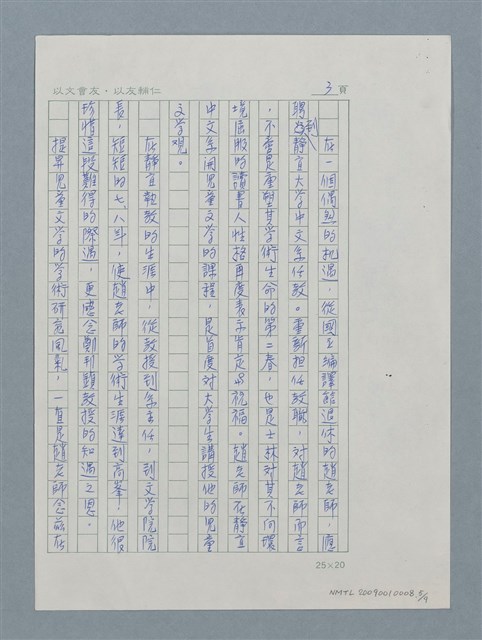 以文會友，以友輔仁
3頁
在一個偶然的机遇，從國立編譯館退休的趙老師，應
聘到靜宜大学中文系任教。重新担任教職，对趙老師而言
，不啻是重塑其学術生命的第二春，也是士林对其不向環
境屈服的讀書人性格再度表示肯定与祝福。趙老師在靜宜
中文系開児童文学的課程，是首度対大学生講授他的児童
文学観。
在靜宜執教的生涯中，從教授到系主任，到文学院院
長，短短的七、八年，使趙老師的学術生涯達到高峯！他很
珍惜這段難得的際遇，更感念鄭邦鎮教授的知遇之恩。
提昇児童文学的学術研究風氣，一直是趙老師念茲在
25×20
NMTL20090010008 5/9